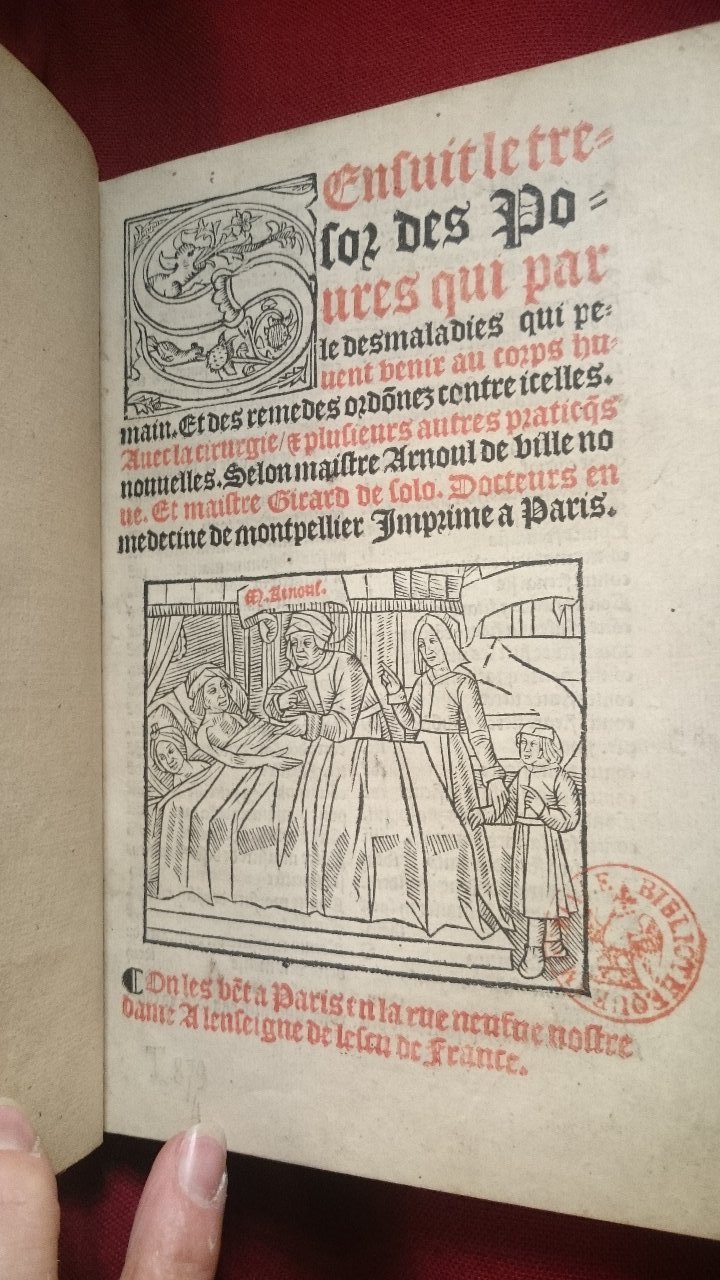 SEnsuit le tre=
sor des Po=
ures qui par
le desmaladies qui pe=
uent venir au corps hu=
main. Et des remedes ordõnez contre icelles.
Auec la cirurgie / & plusieurs autres praticq̃s
nouuelles. Selon maistre Arnoul de ville no
ue. Et maistre Girard de solo. Docteurs en
medecine de montpellier Imprime a Paris.
M. Arnoul.
¶ On les vẽt a Paris en la rue neufue nostre
dame A lenseigne de lescu de France.
BIBLIOTHEQUE